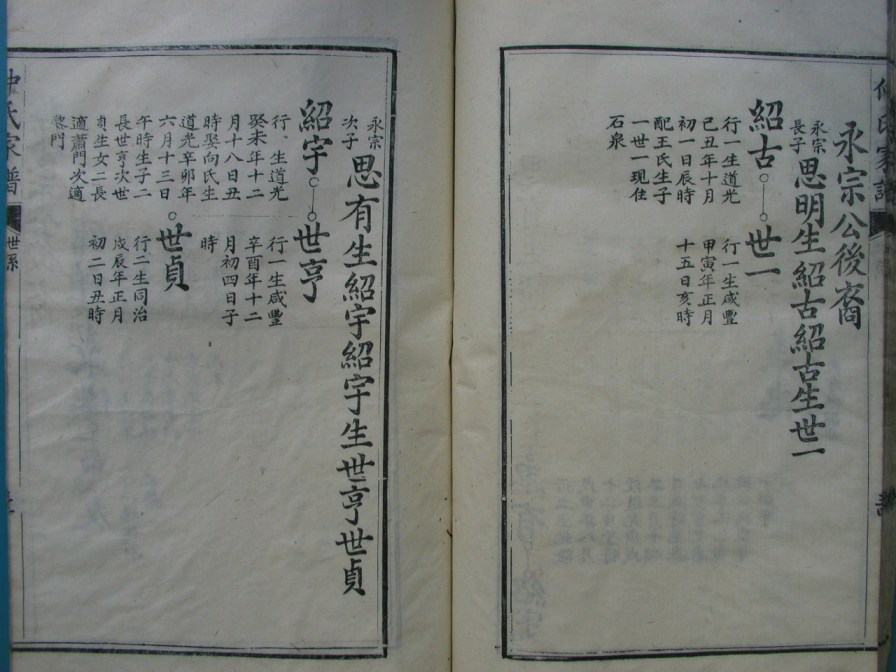 永宗公後裔
永宗
長子
思明生紹古紹古生世一
紹古
世一
行一生道光
己丑年十月
初一日辰時
配王氏生子
一世一現住
石泉
行一生咸豐
甲寅年正月
十五日亥時
永宗
次子
思有生紹宇紹宇生世亨世貞
紹宇
世亨
行一生咸豐
辛酉年十二
月初四日子
時
行 生道光
癸未年十二
月十八日丑
時娶向氏生
道光辛卯年
六月十三日
午時生子二
長世亨次世
貞生女二長
適蕭門次適
黎門
世貞
行二生同治
戊辰年正月
初二日丑時
氏家譜
世系